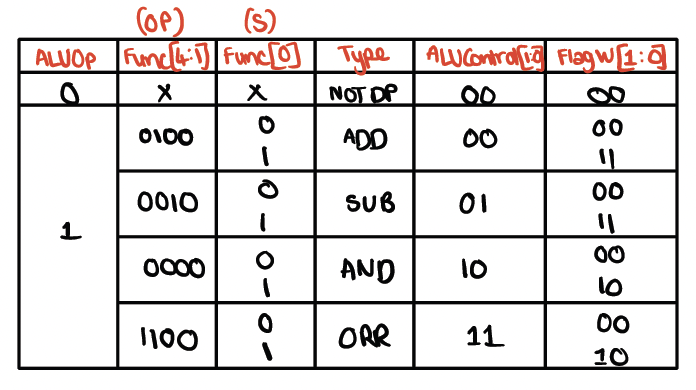 (OP) (S)
ALUOp Func[4:1] Func[0] Type ALUControl[1:0] FlagW[1:0]
0 X X NOT DP 00 00
1
0100 0 1 ADD 00 00 11
0010 0 1 SUB 01 00 11
0000 0 1 AND 10 00 10
1100 0 1 ORR 11 00 10